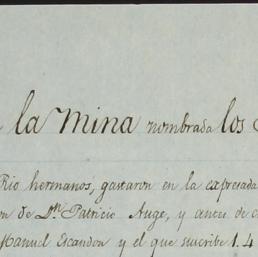 la Mina nombrada los
Rio hermanos, gastaron en la expresada
on de Dn. Patricio Auge, y antes de
Manuel Escandon y el que suscribe 1.4